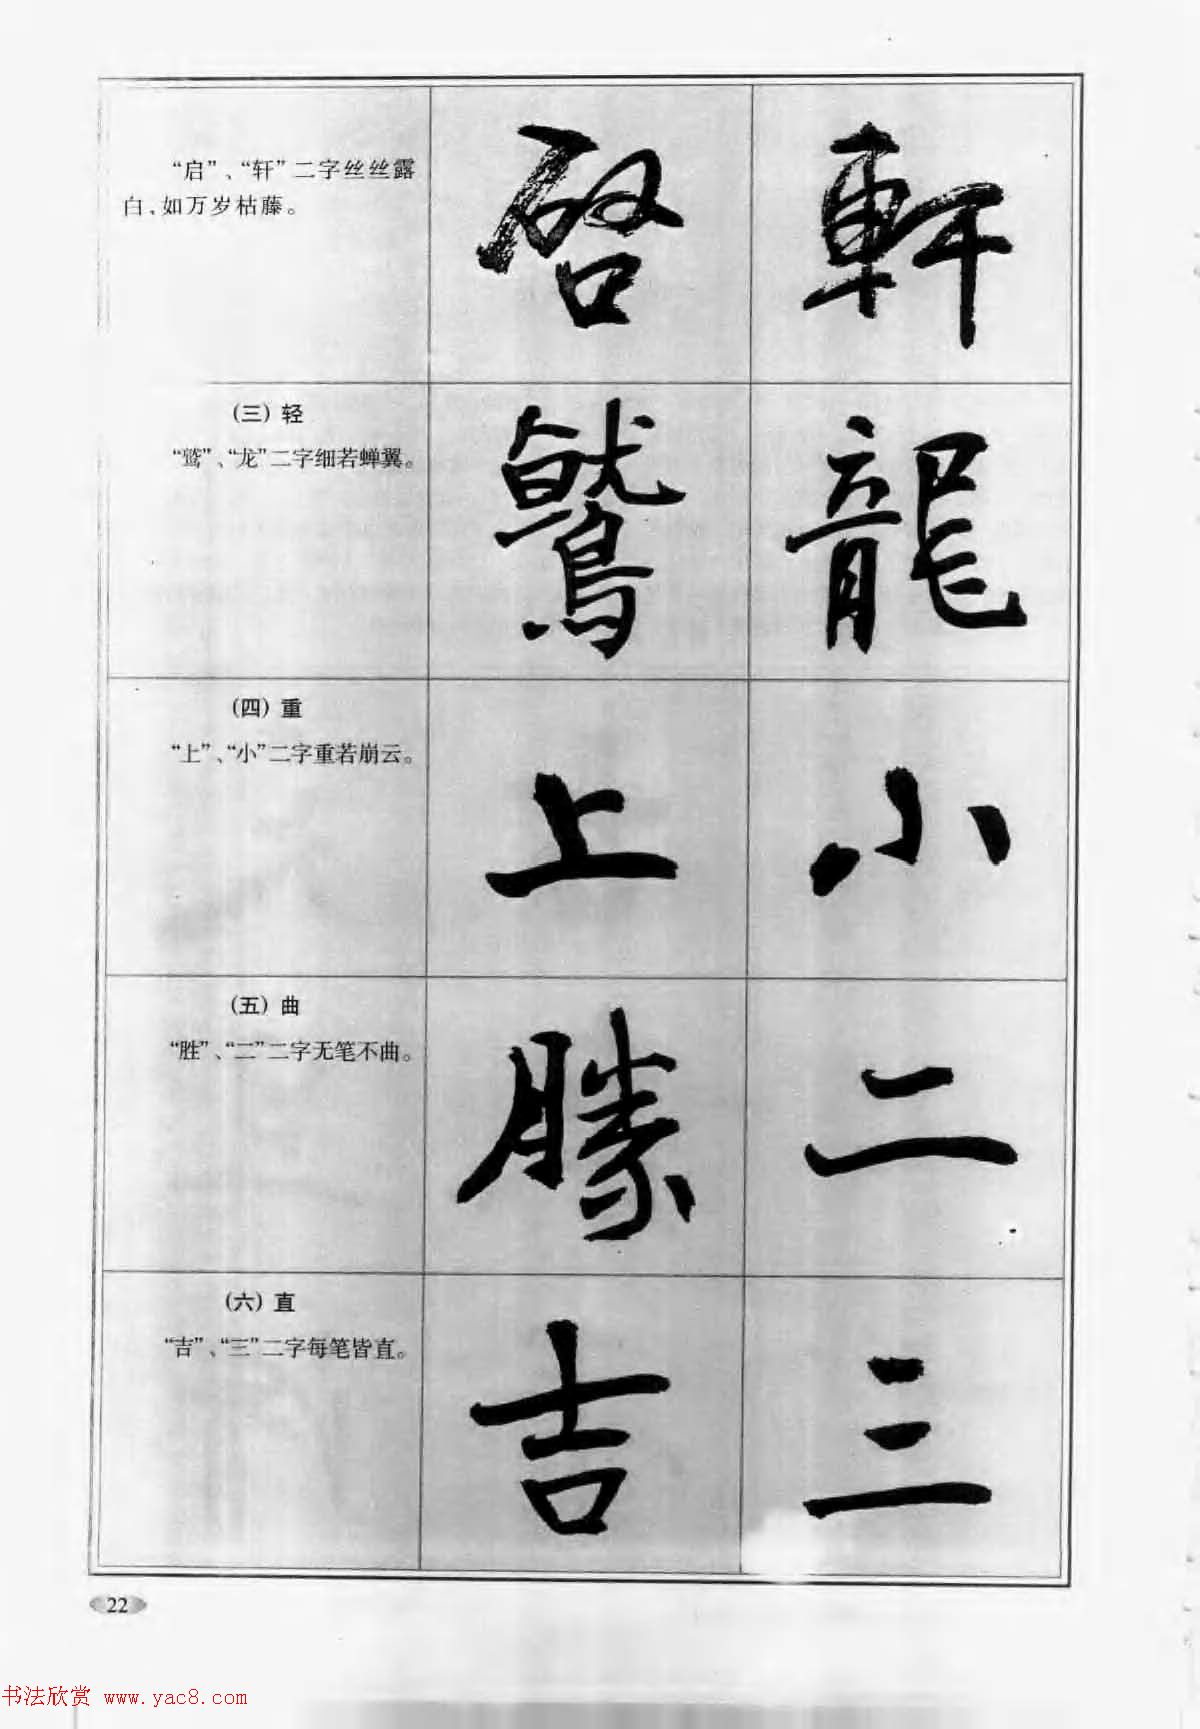 “启”、“轩”二字丝丝露
白、如万岁枯藤。
啓 軒
(三) 轻
“鹫”、“龙”二字细若蝉翼。
鷲 龍
(四) 重
“上”、“小”二字重若崩云。
上 小
(五) 曲
“胜”、“二”二字无笔不曲。
勝 二
(六) 直
“吉”、“三”二字每笔皆直。
吉 三
22
书法欣赏 www.yac8.com